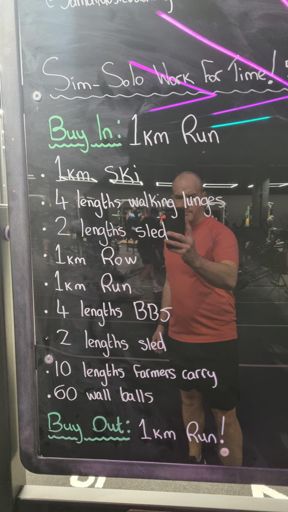 Sim-Solo Work For Time!
Buy In: 1km Run
· 1km Ski
· 4 lengths walking lunges
· 2 lengths sled
· 1km Row
· 1km Run
· 4 lengths BBJ
· 2 lengths sled
· 10 lengths farmers carry
· 60 wall balls
Buy Out: 1km Run!